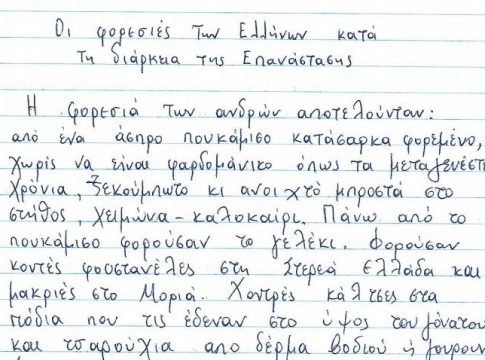 Οι φορεσιές των Ελλήνων κατά
τη διάρκεια της Επανάστασης
Η φορεσιά των ανδρών αποτελούνταν:
από ένα άσπρο πουκάμισο κατάσαρκα φορεμένο,
χωρίς να είναι φαρδομάνικο όπως τα μεταγενέστ
χρόνια, ξεκούμπωτο κι ανοιχτό μπροστά στο
στήθος, χειμώνα-καλοκαίρι. Πάνω από το
πουκάμισο φορούσαν το γελέκι. Φορούσαν
κοντές φουστανέλες στη Στερεά Ελλάδα και
μακριές στο Μοριά. Χοντρές κάλτσες στα
πόδια που τις έδεναν στο ύψος του γόνατου
και τσαρούχια απο δέρμα βοδιού ή γουρου